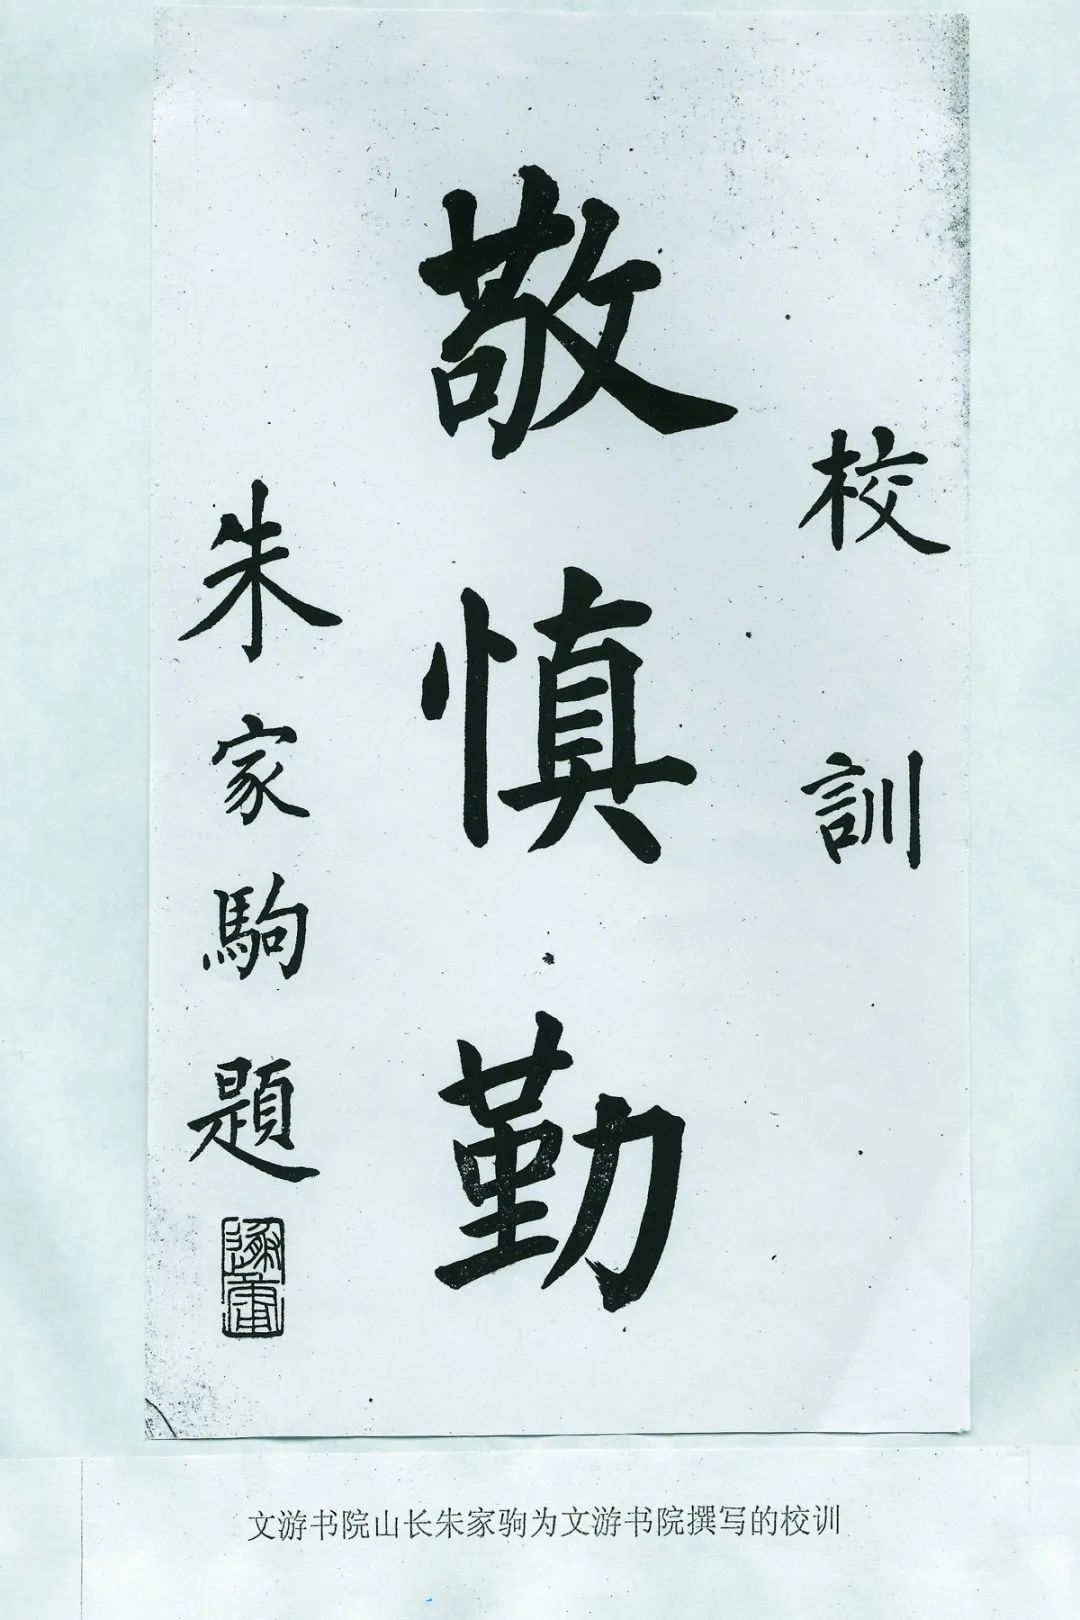 校訓
敬慎勤
朱家駒題
文游书院山长朱家驹为文游书院撰写的校训